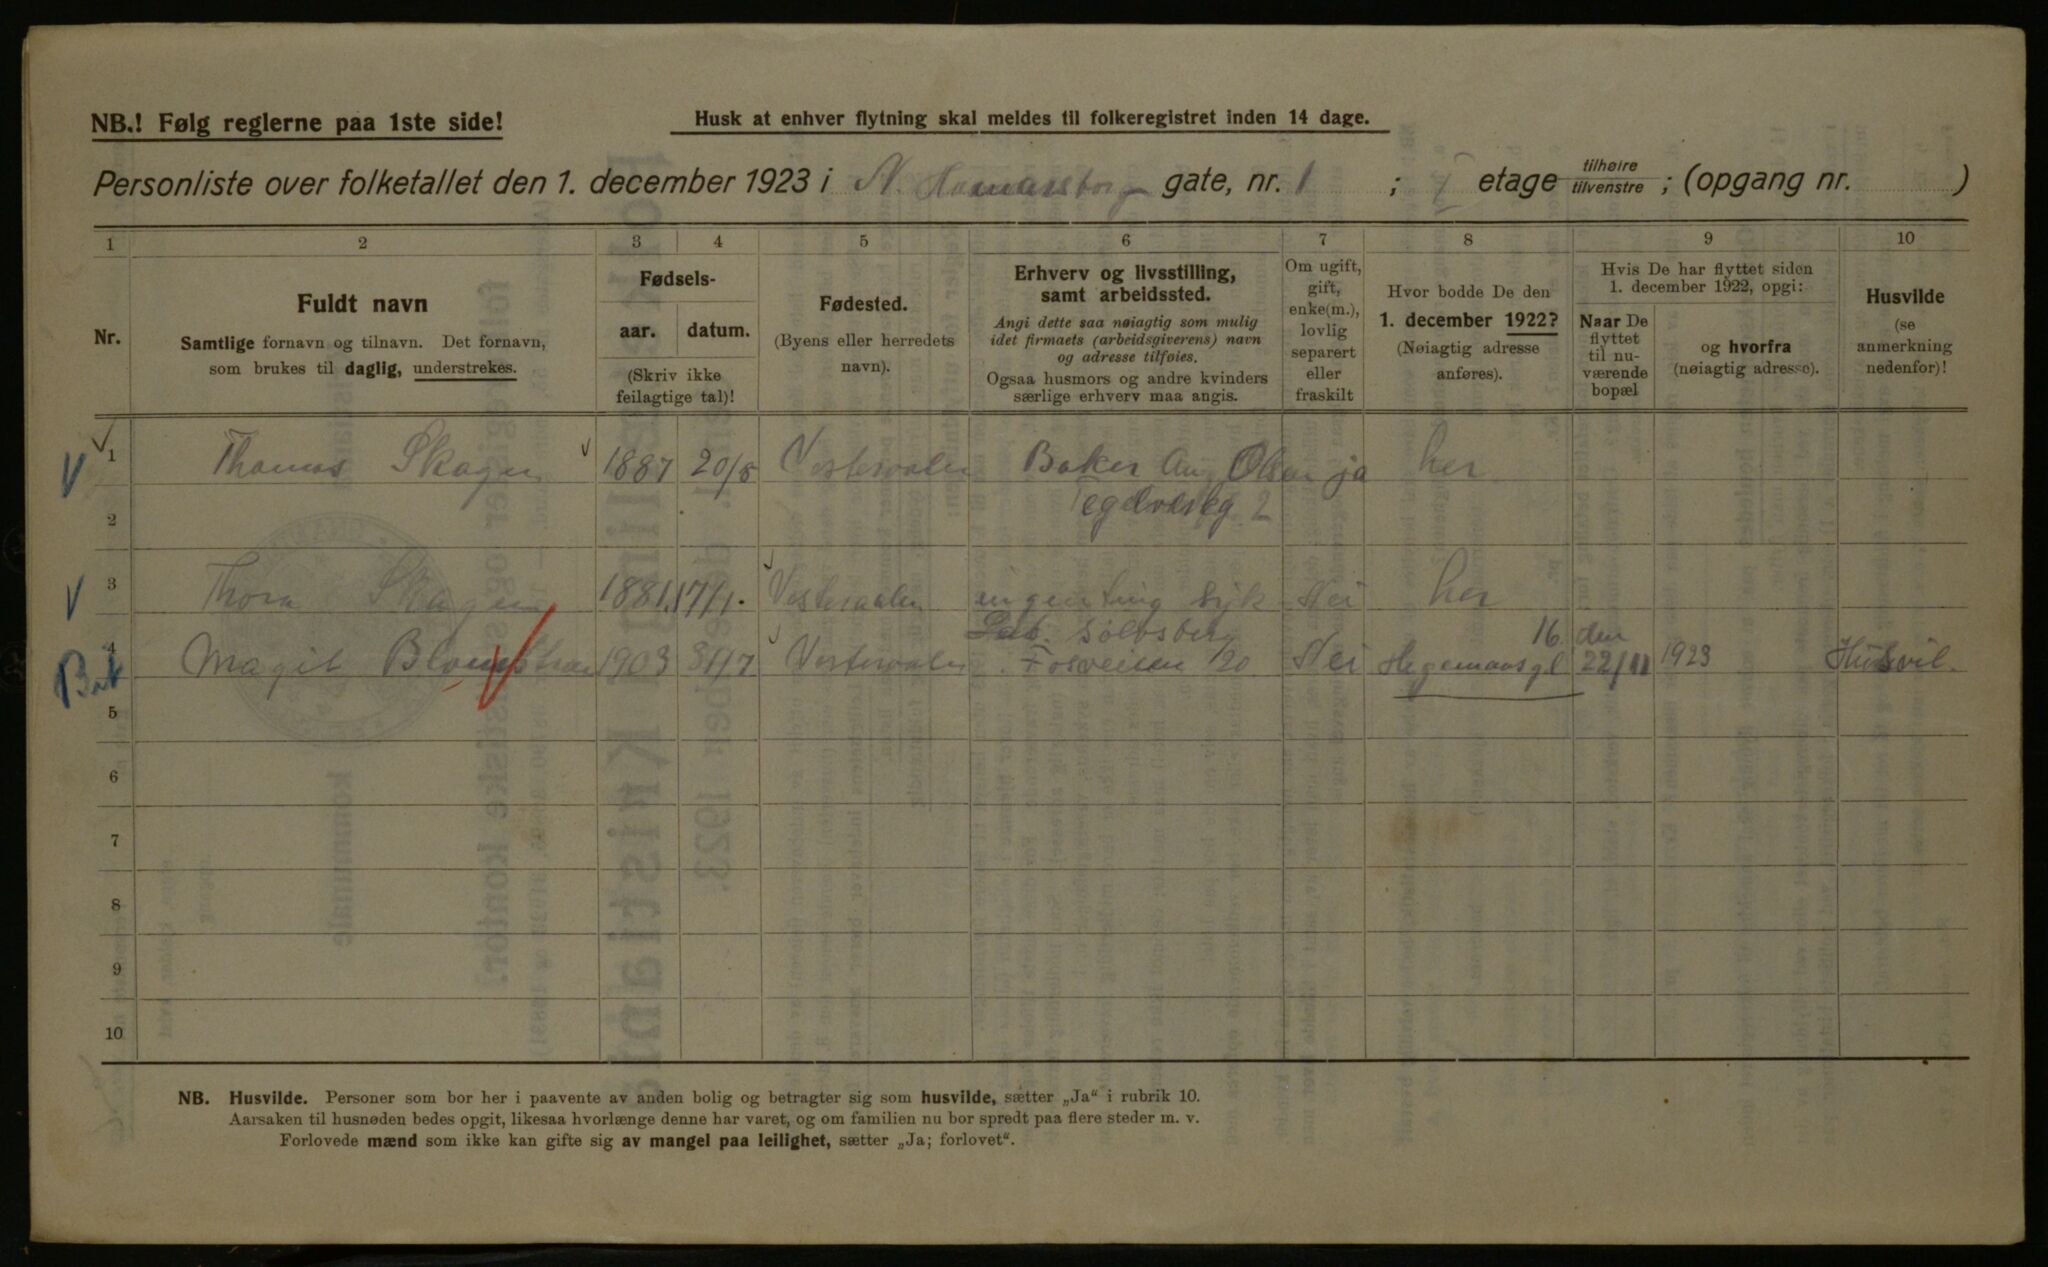 NB.! Følg reglerne paa 1ste side!
Husk at enhver flytning skal meldes til folkeregistret inden 14 dage.
Personliste over folketallet den 1. december 1923 i N. gate, nr. 1 ; I etage tilhøire tilvenstre ; (opgang nr. )
1 2 3 4 5 6 7 8 9 10
Nr.
Fuldt navn
Samtlige fornavn og tilnavn. Det fornavn,
som brukes til daglig, understrekes.
Fødsels-
aar. datum.
(Skriv ikke
feilagtige tal)!
Fødested.
(Byens eller herredets
navn).
Erhverv og livsstilling,
samt arbeidssted.
Angi dette saa nøiagtig som mulig
idet firmaets (arbeidsgiverens) navn
og adresse tilføies.
Ogsaa husmors og andre kvinders
særlige erhverv maa angis.
Om ugift,
gift,
enke(m.),
lovlig
separert
eller
fraskilt
Hvor bodde De den
1. december 1922?
(Nøiagtig adresse
anføres).
Hvis De har flyttet siden
1. december 1922, opgi:
Naar De
flyttet
til nu-
værende
bopæl
og hvorfra
(nøiagtig adresse).
Husvilde
(se
anmerkning
nedenfor)!
1 Thomas Skagen 1887 20/8 Vesteraalen Baker Olsen ja her
2 2
3 Thora Skagen 1881 17/1. Vesteraalen ingenting syk Nei her
Sølvsberg 16 den
4 Magit 1903 31/7 Vesteraalen 20 Nei 22/11 1923 Husvil.
5
6
7
8
9
10
NB. Husvilde. Personer som bor her i paavente av anden bolig og betragter sig som husvilde, sætter „Ja" i rubrik 10.
Aarsaken til husnøden bedes opgit, likesaa hvorlænge denne har varet, og om familien nu bor spredt paa flere steder m. v.
Forlovede mænd som ikke kan gifte sig av mangel paa leilighet, sætter „Ja; forlovet".